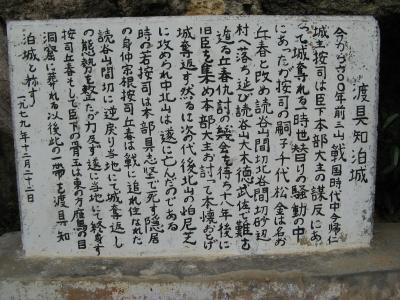 渡具知泊城
今から六〇〇年前三山戦国時代中今帰仁
城主按司は臣下本部大主の謀反にあ
って城奪れる一時世替りの騒動の中
にあったが按司の嗣子千代松金は名お
丘春と改め読谷山間切北谷間切砂辺
村へ落ち延び読谷山大木徳武佐で難を
逃る丘春仇討の機会を待ち十八年後に
旧臣を集め本部大主お討って本懐おとげ
城奪返す然るに次代後北山の怕尼芝
に攻められ中北山は遂に亡んだのである
時の若按司は本部具志堅で死す隠居
の身仲宗根按司丘春は戦に追れ住なれた
読谷山間切に逆戻り当地にて城奪返し
の態勢を整たが力尽す遂に当地にて終身す
按司丘春そして臣下の骨玉は東の方雁馬の目
洞窟に葬れる以後此の一帯を渡具知
泊城と称す
一九七九年十二月二十二日